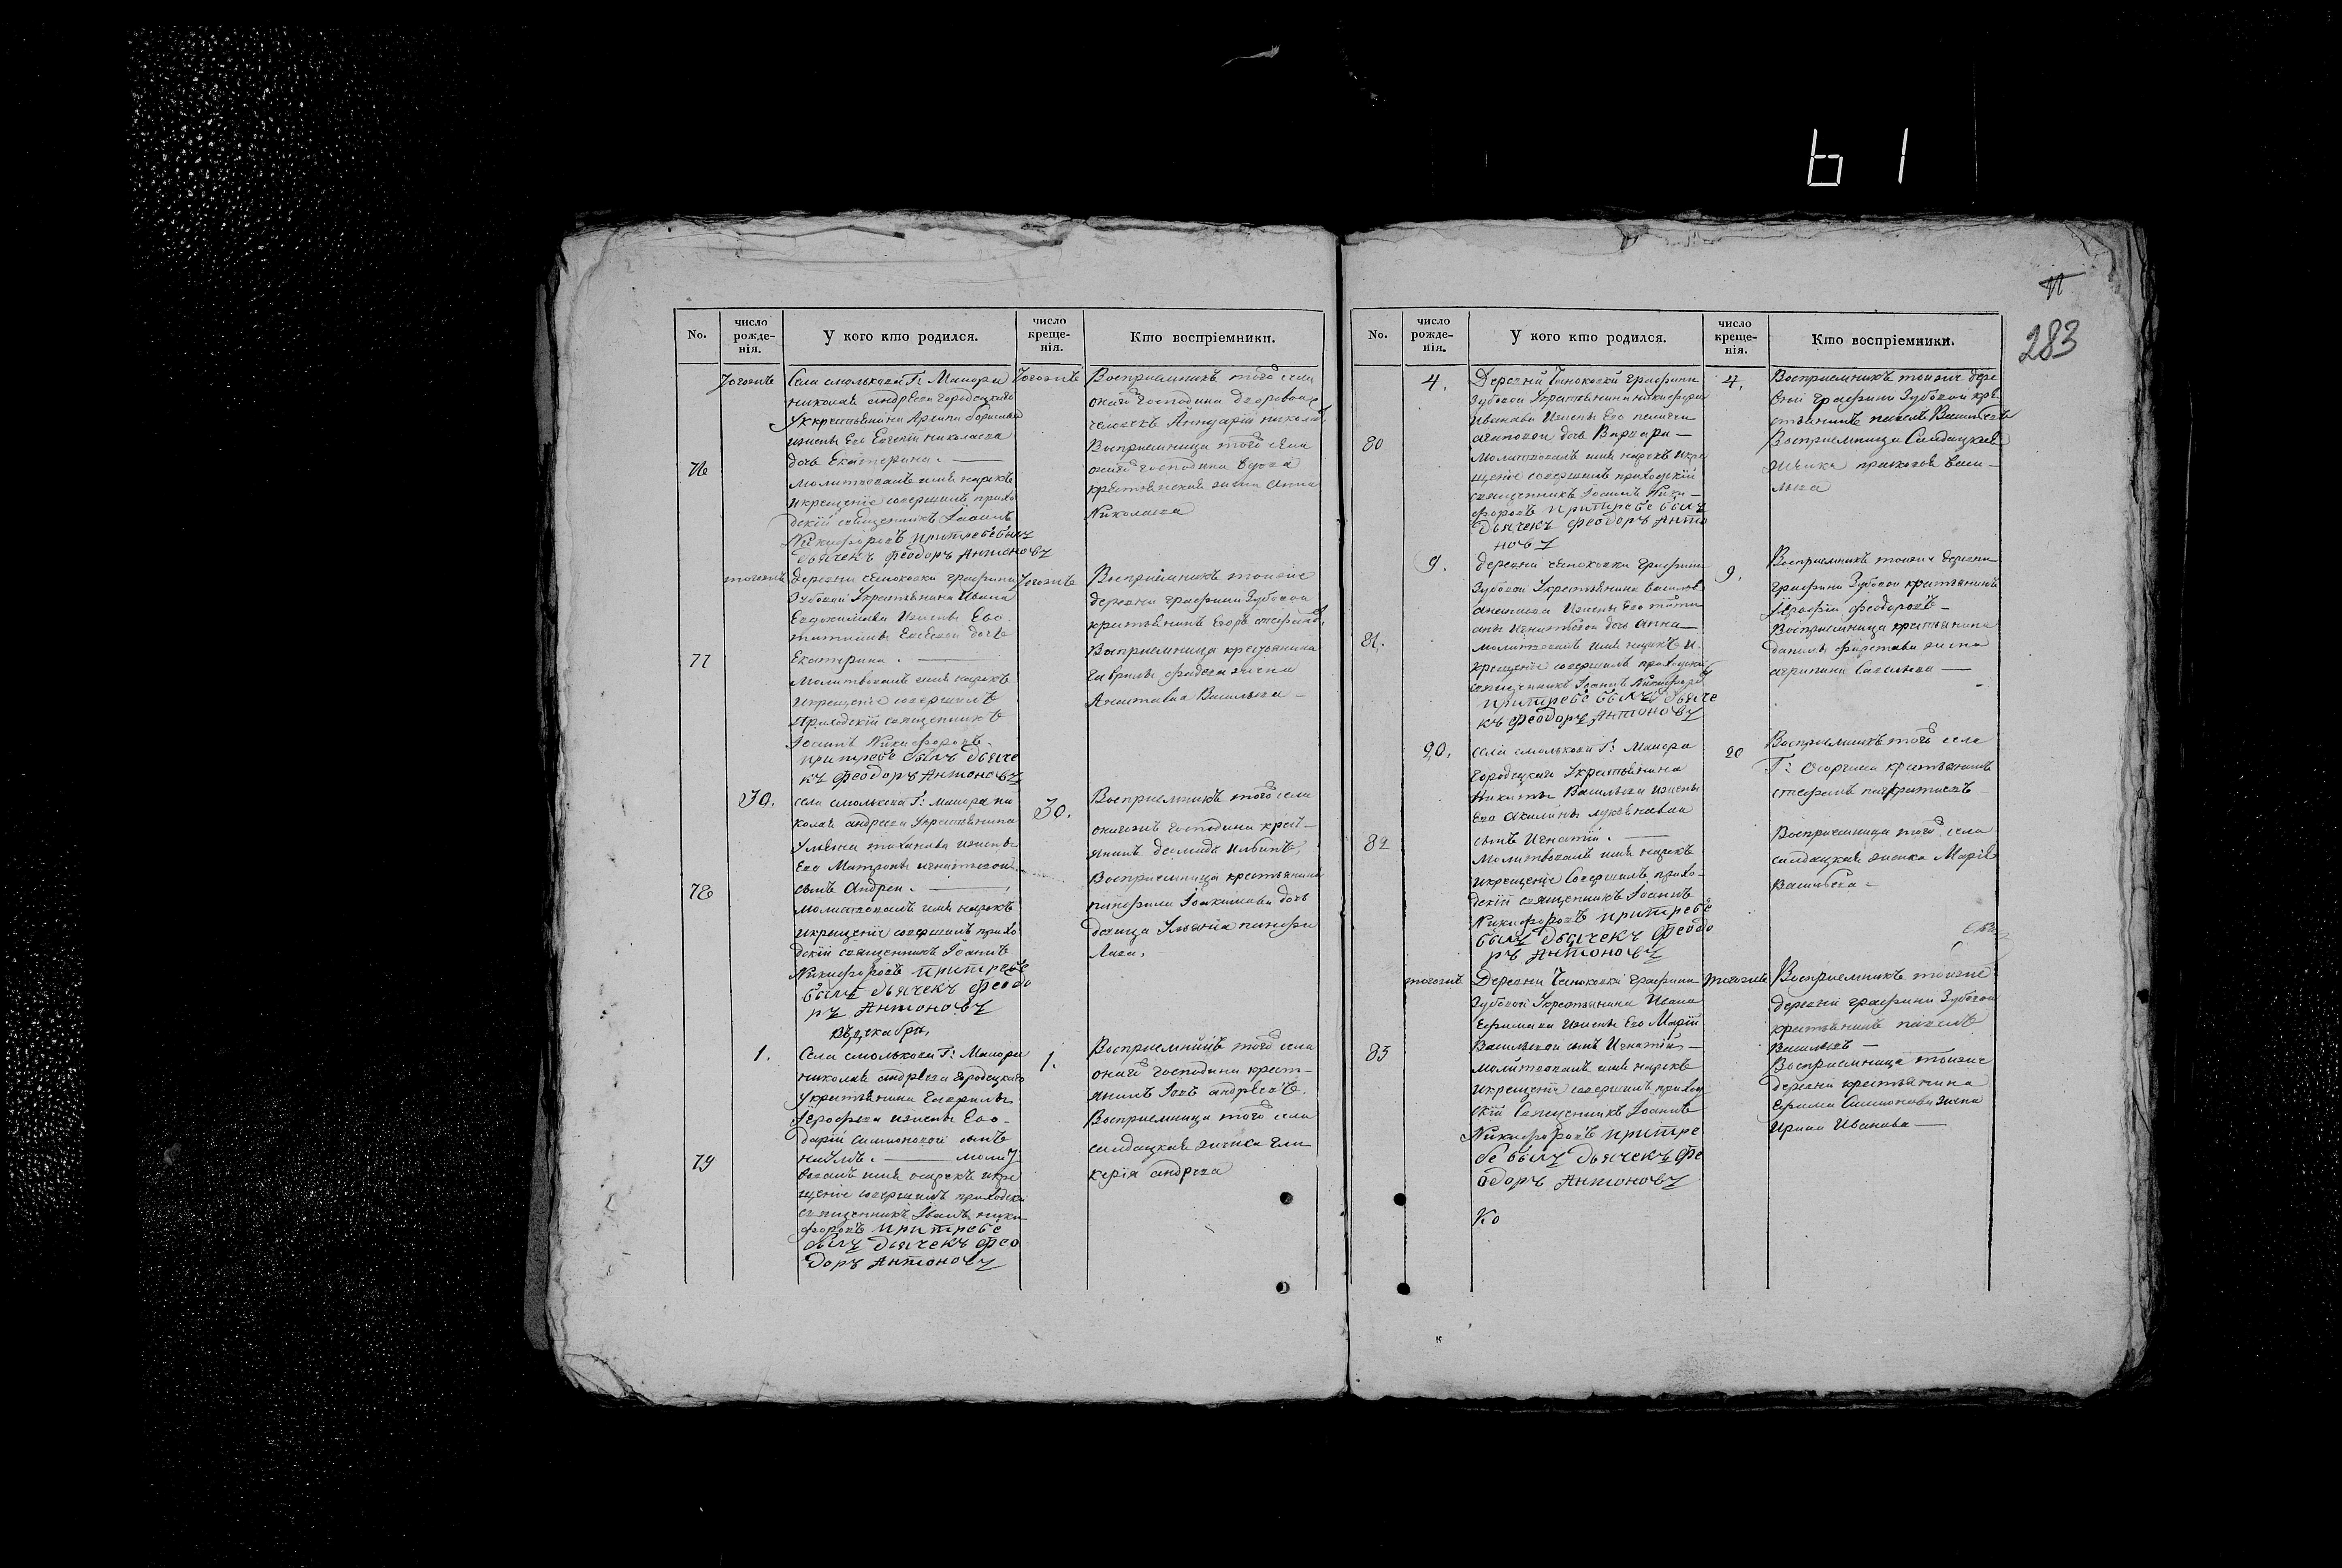 61
283
No.
число рожде-нія.
У кого кто родился.
число креще-нія.
Кто воспріемники.
Тогожъ
Села смолькова Г: Маиора
николая андреева городецкаго
Укрестьянина Архипа
ижены Его Евгеніи николаева
76
дочь Екатерина.
молитвовалъ имя нарекъ
икрещеніе совершилъ прихо
дскій священникъ Іоаннъ
Никифоровъ притребѣ былъ
дьячекъ феодоръ Антоновъ
Тогожъ
Воспріемникъ того села
онаго господина дворовои
человекъ николаевъ
Воспріемница того села
онаго господина вдова
крестьянская жена Анна
Николаева
тогожъ
деревни графини
Зубовой Укрестьянина Ивана
Евдокимова Ижены Его
дочь
77
Екатерина.
Молитвовалъ имя нарекъ
икрещеніе совершилъ
Приходскій священникъ
Іоаннъ Никифоровъ
притребѣ былъ дьяче
къ феодоръ Антоновъ
Тогожъ
Воспріемникъ тоиже
деревни графини Зубовои
крестьянинъ Егоръ
Воспріемница крестьянина
гаврилы фадеева жена
Васильева
30.
села смолькова Г: маиора ни
колая андреева Укрестьянина
Ульяна ижены
Его Матроны игнатьевои
78
сынъ Андреи.
молитвовалъ имя нарекъ
икрещеніе совершилъ прихо
дскій священникъ Іоаннъ
Никифоровъ притребѣ
былъ дьячекъ феодо
ръ Антоновъ
30.
Воспріемникъ того села
онагожъ господина крест-
янинъ демидъ Ильинъ,
Воспріемница крестьянина
панфила Іоакимова дочь
девица Ульяна панфи
лова.
въ декабри,
1.
Села смолькова Г: Маиора
николая андреева городецкаго
Укрестьянина Гаврилы
Ерофеева ижены Его
дарій симіоновой сынъ
79
наумъ. молит
вовалъ имя нарекъ икре
щеніе совершилъ приходскій
священникъ Іоаннъ ники
форовъ притребѣ
былъ дьячекъ фео
доръ Антоновъ
1.
Воспріемникъ того села
онаго господина крест-
янинъ Іовъ андреевъ.
Воспріемница того села
салдацкая женка гли
керія андреева
No.
число рожде-нія.
У кого кто родился.
число креще-нія.
Кто воспріемники.
4.
Деревни графини
Зубовой Укрестьянина никифора
Иванова Ижены Его пелагеи
80
дочь Варвара
молитвовалъ имя нарекъ икре
щеніе совершилъ приходскій
священникъ Іоаннъ Ники-
форовъ притребѣ былъ
Дьячекъ феодоръ Анто
новъ
4.
Воспріемникъ тоиже дере
вни графини Зубовой кре
стьянинъ павелъ Васильевъ
Воспріемница Салдацкая
женка васи-
льева
9.
деревни графини
Зубовой Укрестьянина василья
Ижены Его татья
аны Игнатьевои дочь Анна
81.
молитвовалъ имя нарекъ и
крещеніе совершилъ приходскій
священникъ Іоаннъ Никифоровъ
притребѣ былъ дьяче
къ феодоръ Антоновъ
9.
Воспріемникъ тоиже деревни
графини Зубовой крестьянинъ
феодоровъ
Воспріемница крестьянина
данилы жена
савельева
20.
села смолькова Г: Маиора
городецкаго Укрестьянина
Никиты Васильева ижены
Его Акилины
82
сынъ Игнатій.
молитвовалъ имя нарекъ
икрещеніе Совершилъ прихо-
дскій священникъ Іоаннъ
Никифоровъ притребѣ
былъ дьячекъ феодо
ръ Антоновъ
20
Воспріемникъ того села
Г: крестьянинъ
стефанъ
Воспріемница того села
салдацкая женка Марія
Васильева
тогожъ
Деревни графини
Зубовой Укрестьянина Ивана
Ефимова Ижены Его Маріи
83
Васильевой сынъ Игнатій
молитвовалъ имя нарекъ
икрещеніе совершилъ приход
скій Священникъ Іоаннъ
Никифоровъ притре
бѣ былъ дьячекъ фе
одоръ Антоновъ
Ко
тогожъ
Воспріемникъ тоиже
деревни графини Зубовой
крестьянинъ павелъ
Васильевъ
Воспріемница тоиже
деревни крестьянина
Ефима Симіонова жена
Ирина Иванова